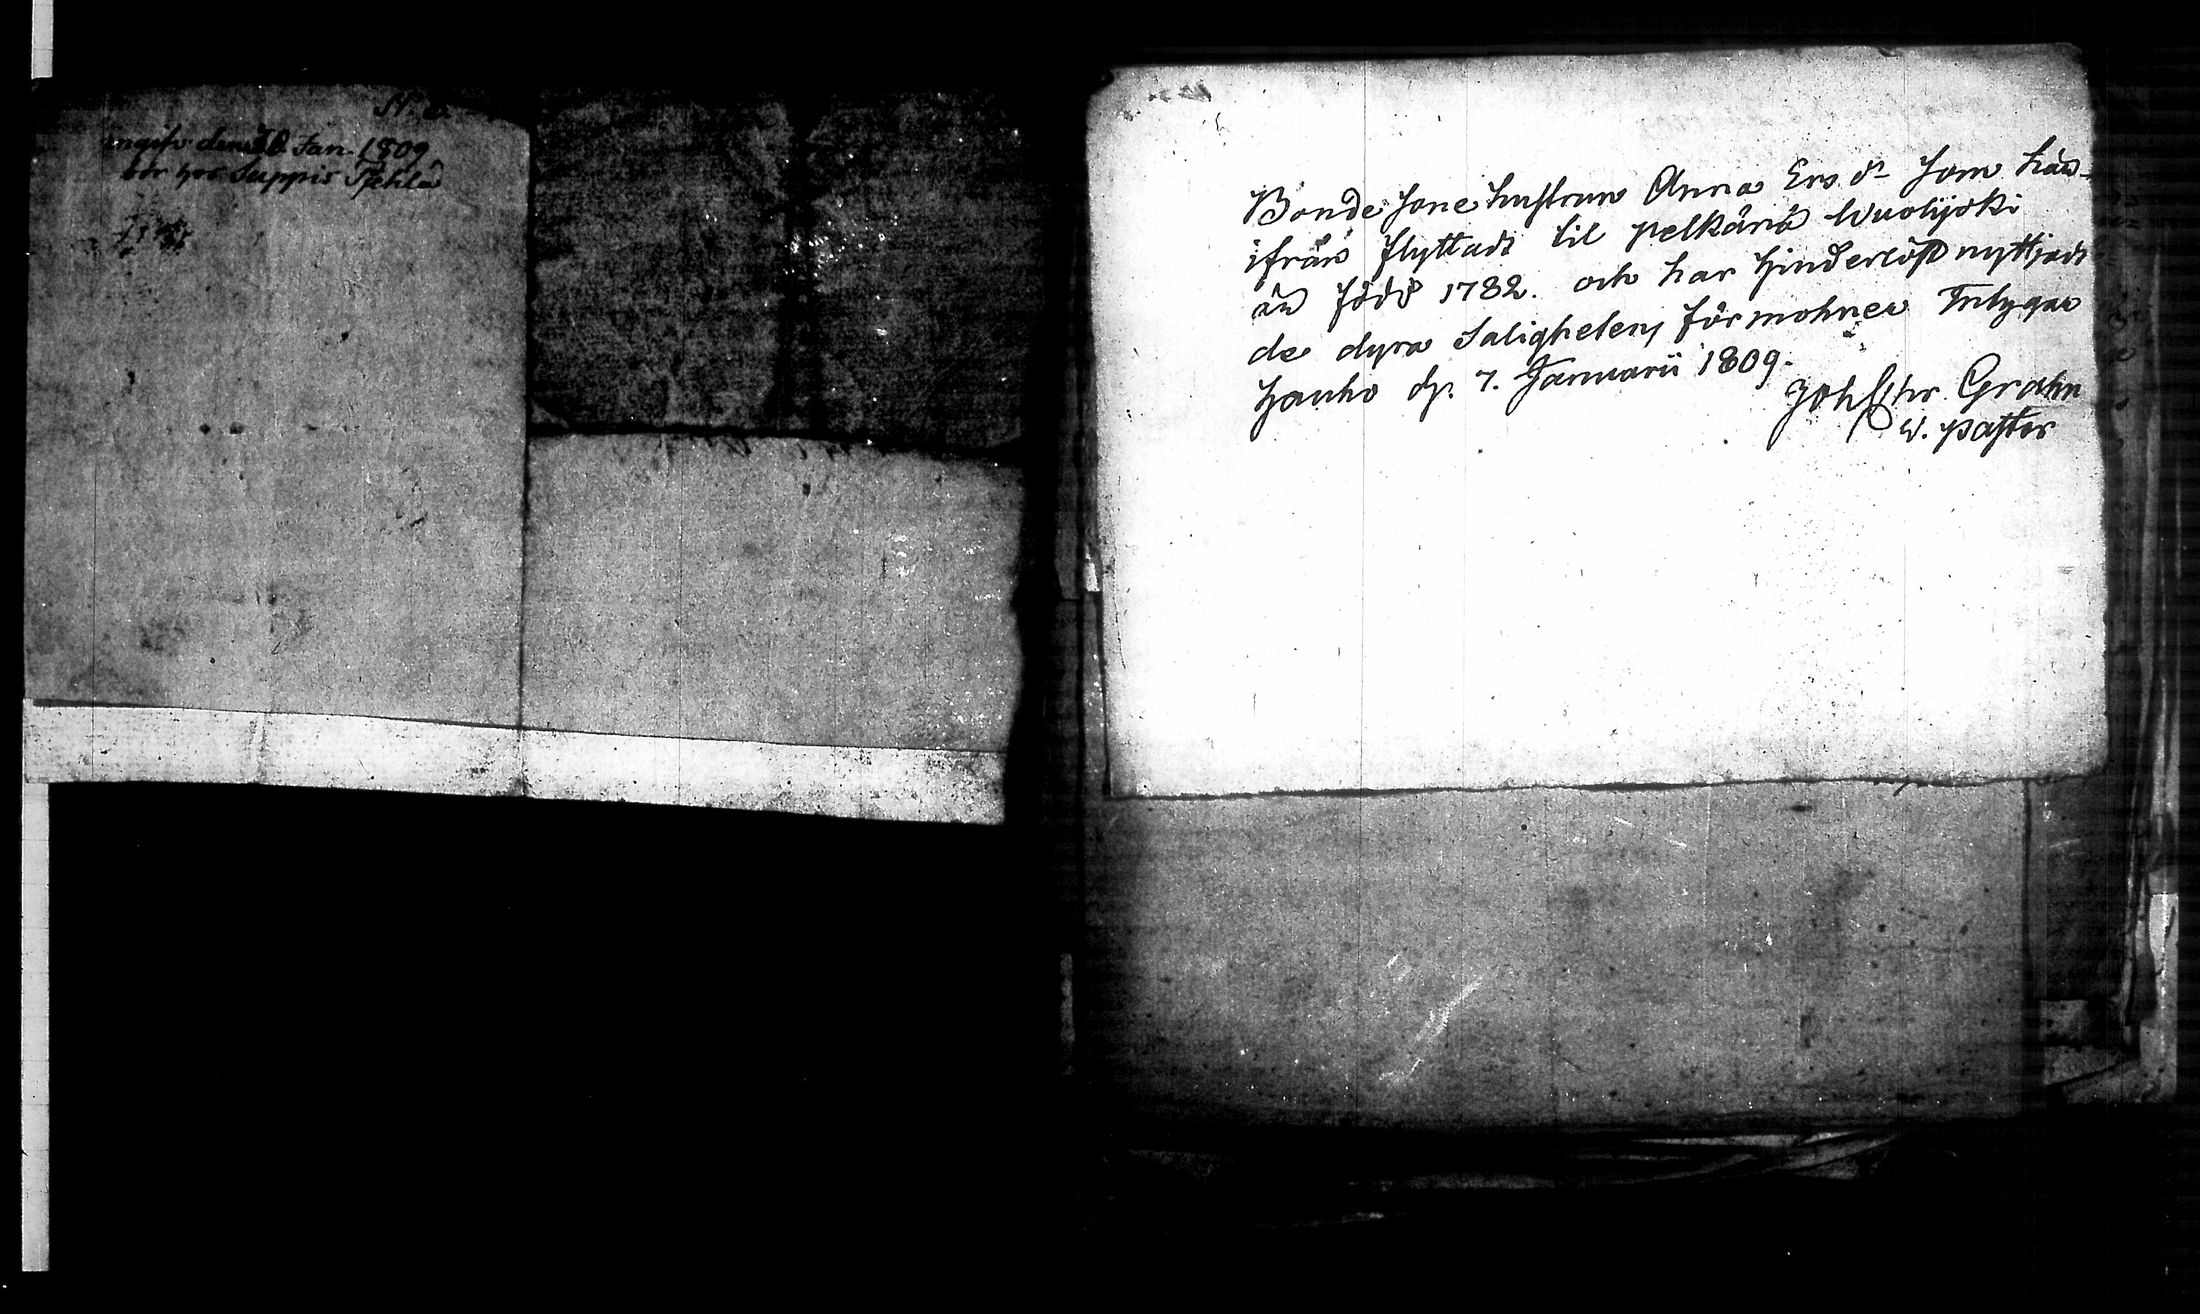 N. 2.
ingifv den 30 Jan. 1809
bor hos Seppis Pehla
Bonde Sone hustrun Anna Ers dr Som hän-
ifrån flyttadt til Pelkänä Wuolijoki
än född 1782. och har hinderlöst nyttjadt
de dyra Salighetens förmohner Intygar
Hauho dp. 7. Januarii 1809.
Joh Chr. Grahn
V. Pastor